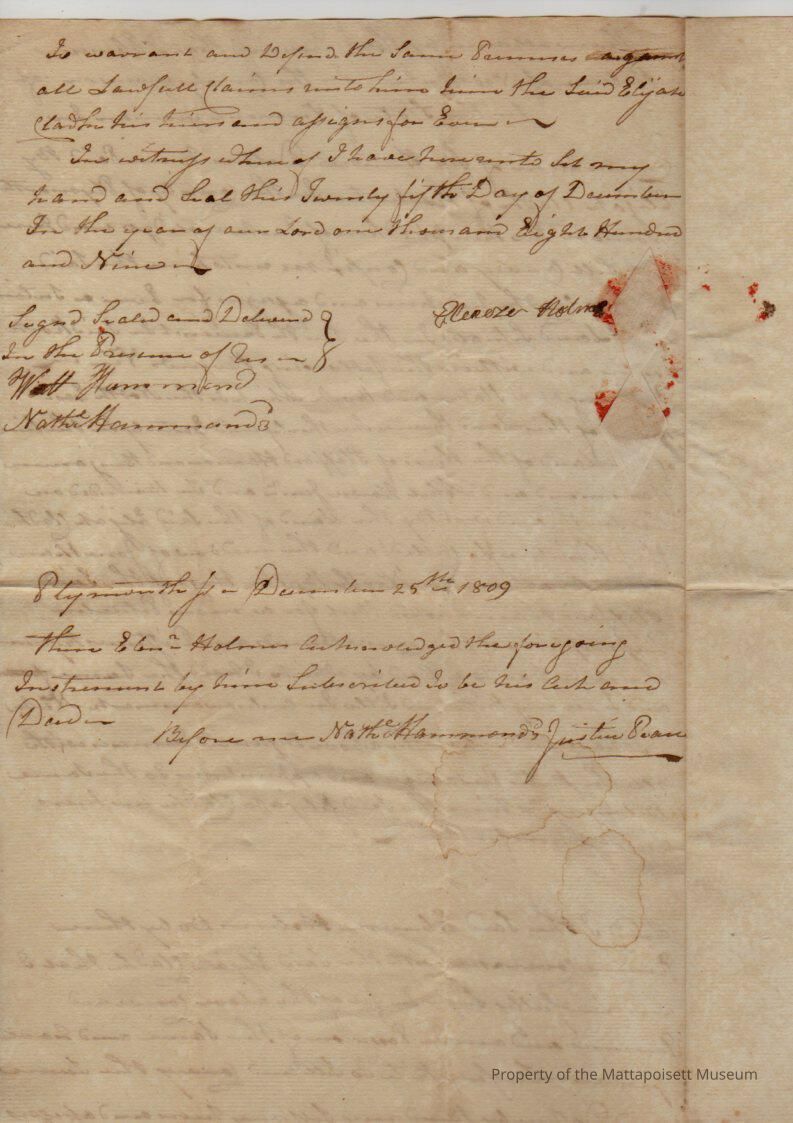 To warrant and Defend the Same Premises against
all Lawfull Claims unto him him the Said Elijah
his heirs and assigns for Ever
In witness whereof I have hereunto Set my
hand and Seal this Twenty fifth Day of December
In the year of our Lord one thousand Eight Hundred
and Nine
Signd Sealed and Deliverd
In the Presence of Us
Hammond
Nathl Hammond
Ebenezer Holmes
Plymouth Ss December 25th 1809
Then Ebenr Holmes Acknowledged the foregoing
Instrument by him Subscribed to be his Act and
Deed
Before me Nathl Hammond Justice Peace
Property of the Mattapoisett Museum